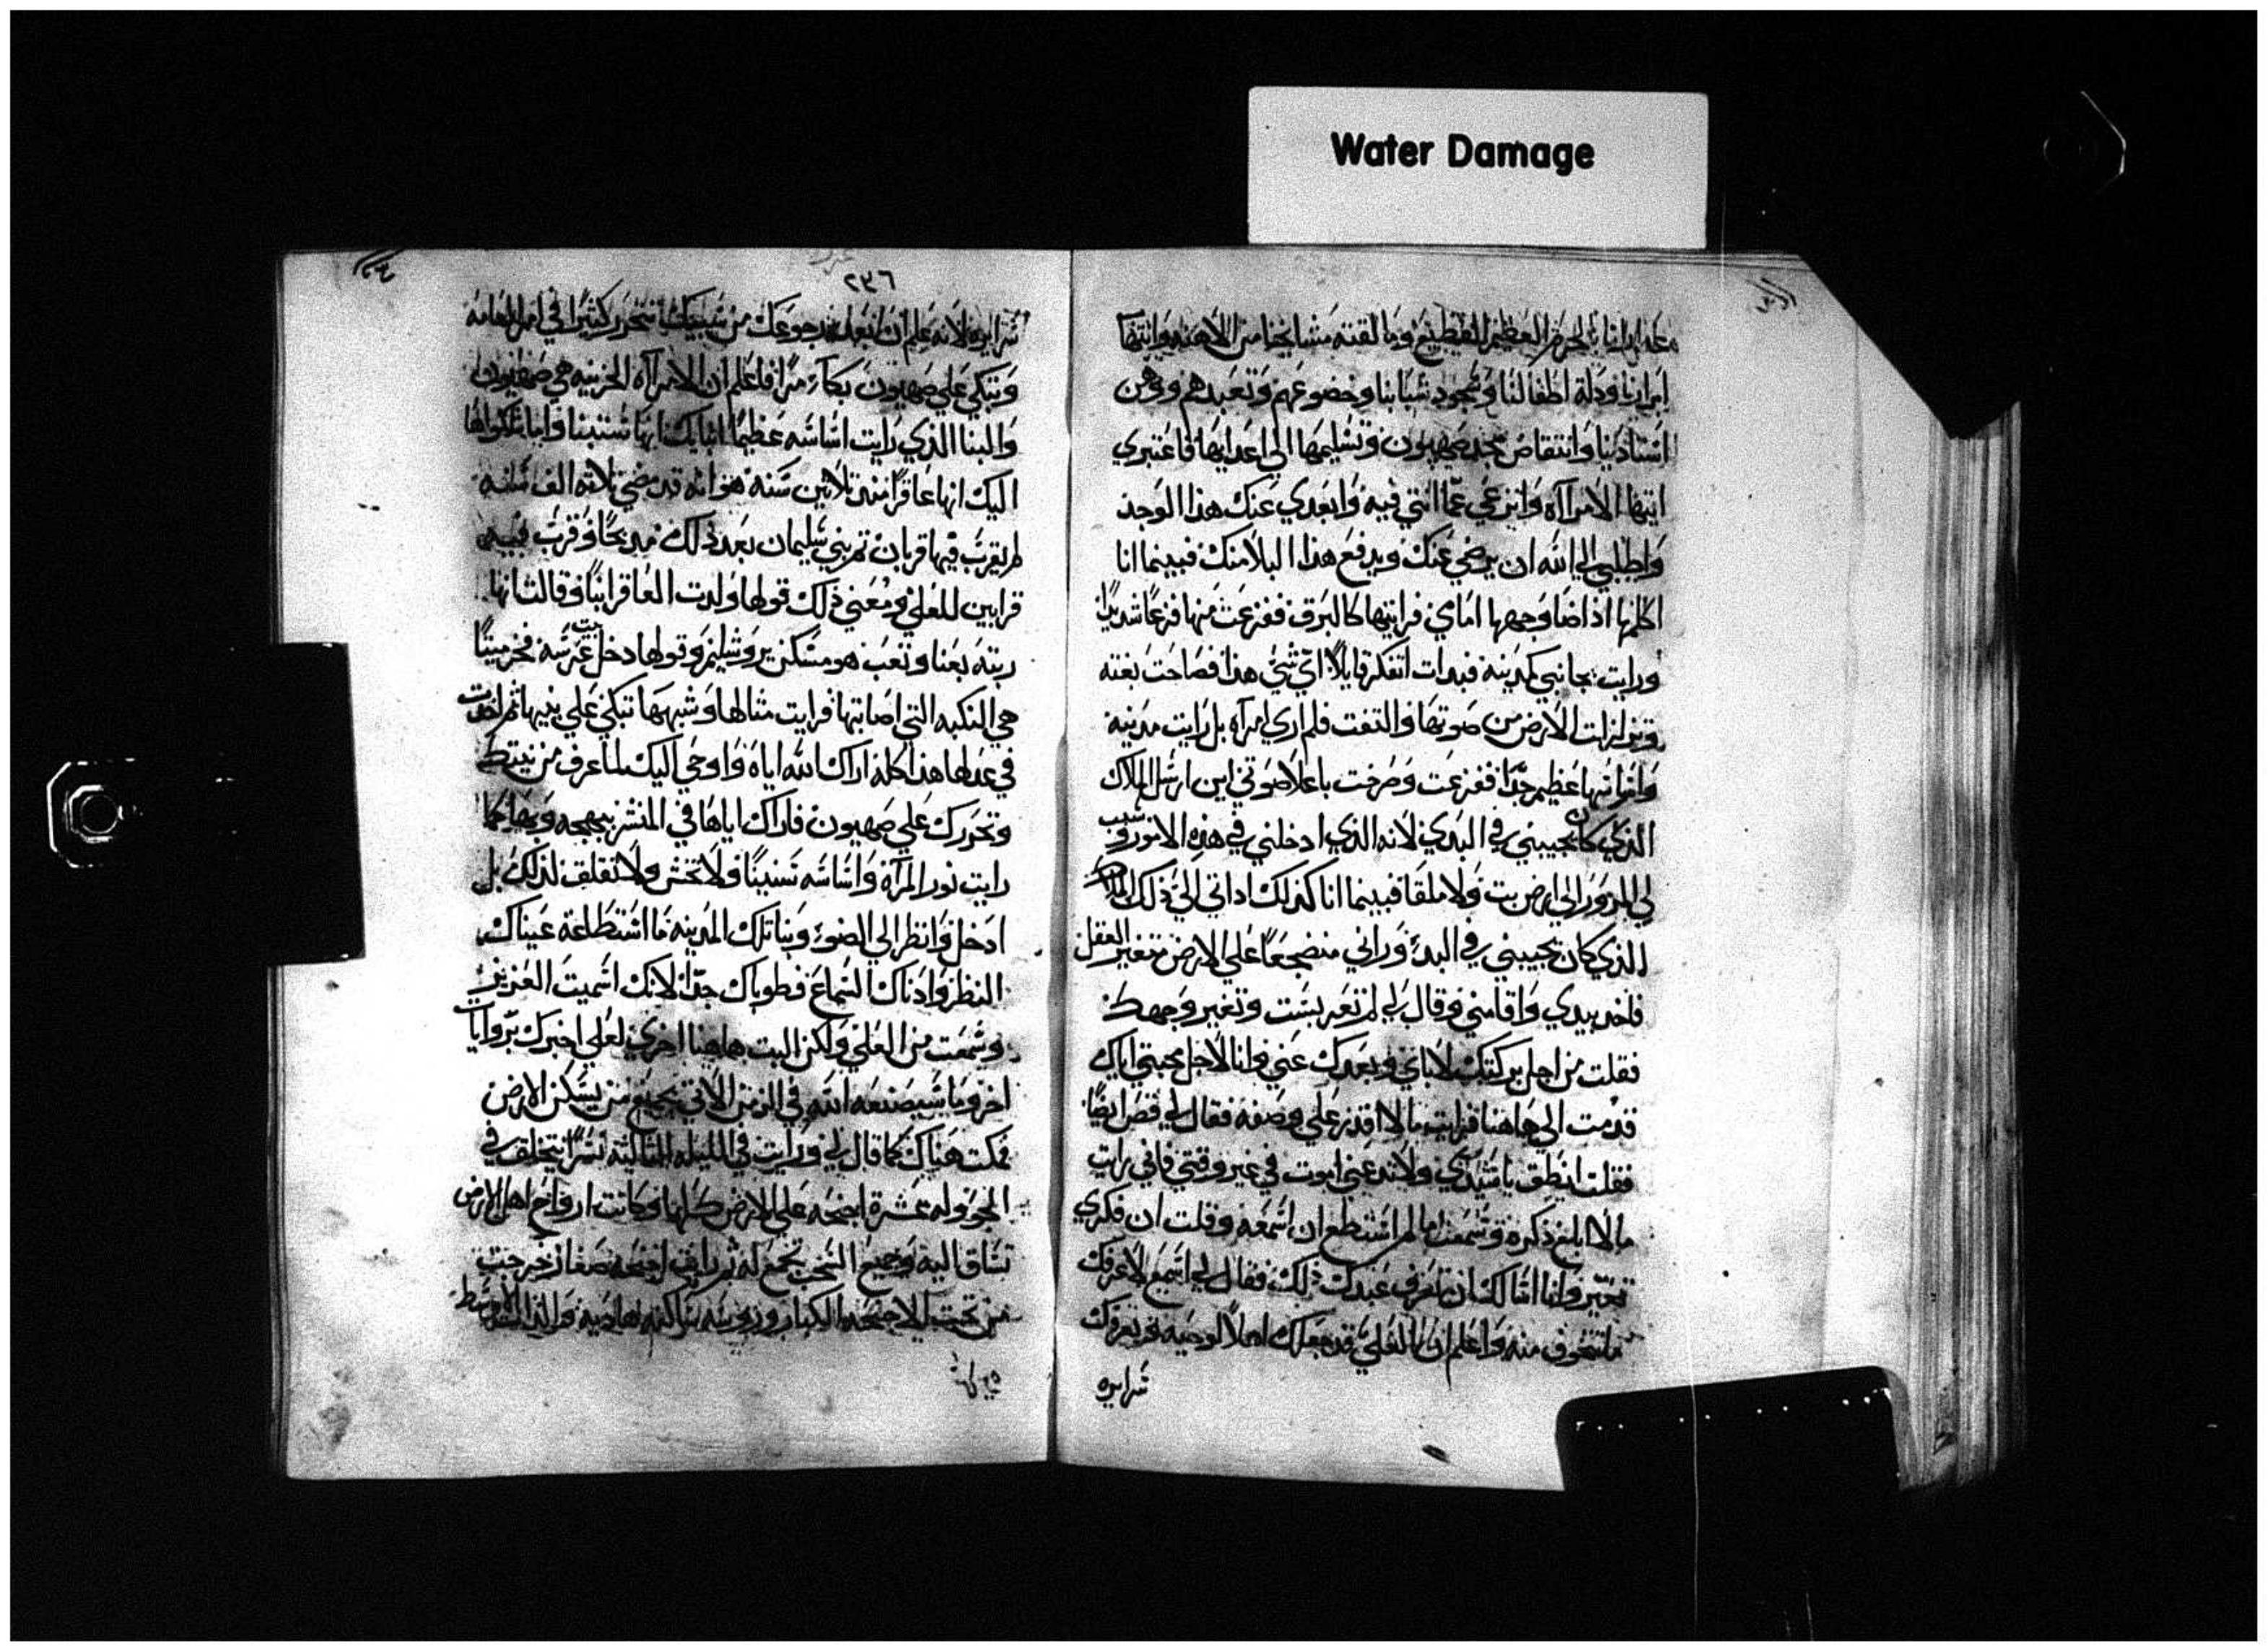 Water Damage
ابرارنا ودلة اطفالنا وسجود شبابنا وخضوعهم وتعبدهم ووهن
استاذينا وانتقاص مجد صهيون وتسليمها الي اعدايها فاعتبري
ايتها الامرااه وانزعي عما انتي فيه وابعدي عنك هذا الوجد
واطلبي الي الله ان يرضي عنك ويدفع هذا البلا منك فبينما انا
اكلمها اذ اضا وجهها امامي فرايتها كالبرق ففزعت منها فزعا شديدا
ورايت بجانبي كمدينه فبدات اتفكر قايلا اي شي هذا فصاحت بغته
وتزلزلت الارض من صوتها والتفت فلم اري امراه بل رايت مدينه
واساسها عظيم جدا ففزعت وصرخت باعلا صوتي اين ارسل الملاك
الذي كان يجيبني في البدي لانه الذي ادخلني في هذه الامور
فبينما انا كذلك اذ اتي الي ذلك الملاك
الذي كان يجيبني في البدء وراني منضجعا علي الارض متغير العقل
فاخذ بيدي واقامني وقال لي لم تعبست وتغير وجهك
فقلت من اجل تركتك لاياي وبعدك عني وانا لاجل محبتي اياك
قدمت الي هاهنا فرايت ما لا اقدر علي وصفه فقال لي قص ايضا
فقلت انطق يا سيدي ولا تدعني اموت في غير وقتي فاني رايت
ما لا ابلغ ذكره وسمعت ما لم استطع ان اسمعه وقلت ان فكري
تغير وانا اسالك ان تعرف عبدك ذلك فقال لي اسمع لاعرفك
ما تتخوف منه واعلم ان العلي قد جعلك اهلا لوصيه
سرايره
٢٣٦
سرايره لانه علم ان
وتبكي علي صهيون بكاء مرا فاعلم ان الامرااه الحزينه هي صهيون
والبنا الذي رايت اساسه عظيما
اليك انها عاقرا منذ تلاثين سنه هو انه قد مضي تلاثه الف سنه
لم يقرب فيها قربان ثم بني سليمان بعد ذلك مدبحا وقرب فيه
قرابين للعلي ومعني ذلك قولها ولدت العاقر ابنا وقالت انها
ربته بعنا وتعب هو مسكن يروشليم وقولها دخل بيت عرسه فخر ميتا
هي النكبه التي اصابتها فرايت مثالها وشبهها تبكي علي بنيها ثم اخدت
في عدلها هذا كله اراك الله اياه واوحي اليك لما عرف من نيتك
وتحررك علي صهيون فاراك اياها في المنشر
رايت نور المراه واساسه تسنينا ولا تخش ولا تقلق لذلك بل
ادخل وانظر الي الضوء وبنا تلك المدينه ما استطاعة عيناك
النظر واذناك السماع فطوباك جدا لانك اسميت العزيز
وسمعت من العلي ولكن البت هاهنا اخري لعلي اخبرك برويات
اخر وما سيصنعه الله في الزمن الاتي بجميع من يسكن الارض
فمكت هناك كما قال لي ورايت في الليله الثالثه نسرا يتخلق في
الجو وله عشرة اجنحه علي الارض كلها وكانت ارواح اهل الارض
تساق اليه وجميع السحب تجمع له ثم رايت اجنحه صغار خرجت
من تحت الاجنحه الكبار وروسه ساكنه هاديه والراس الاوسط